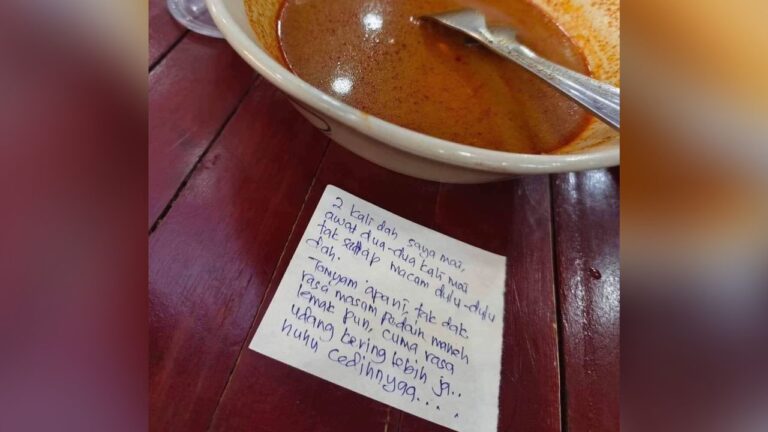 2 kali dah saya mai,
awat dua-dua kali mai
tak sedap macam dulu-dulu
dah.
Tomyam apa ni, tak dak
rasa masam padaih maneh
lemak pun, cuma rasa
udang kering lebih ja..
huhu cedihnyaa....